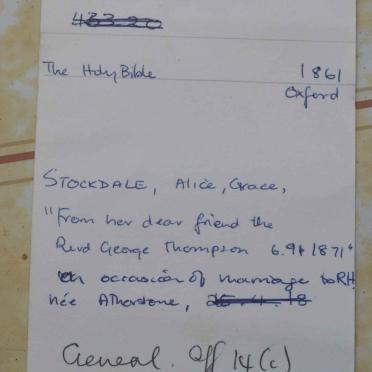 433.20
The Holy Bible 1861
Oxford
STOCKDALE, Alice, Grace,
"From her dear friend the
Revd George Thompson 6.9+1871"
on occasion of marriage to RH
née Atherstone,
General. Off 14(c)